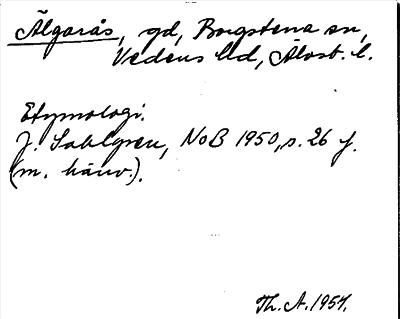 Älgarås, gd, Borgstena sn,
Vedens hd, Älvsb. l.
Etymologi.
J. Sahlgren, NoB 1950, s. 26 f.
(m. hänv.).
Th. A. 1957.